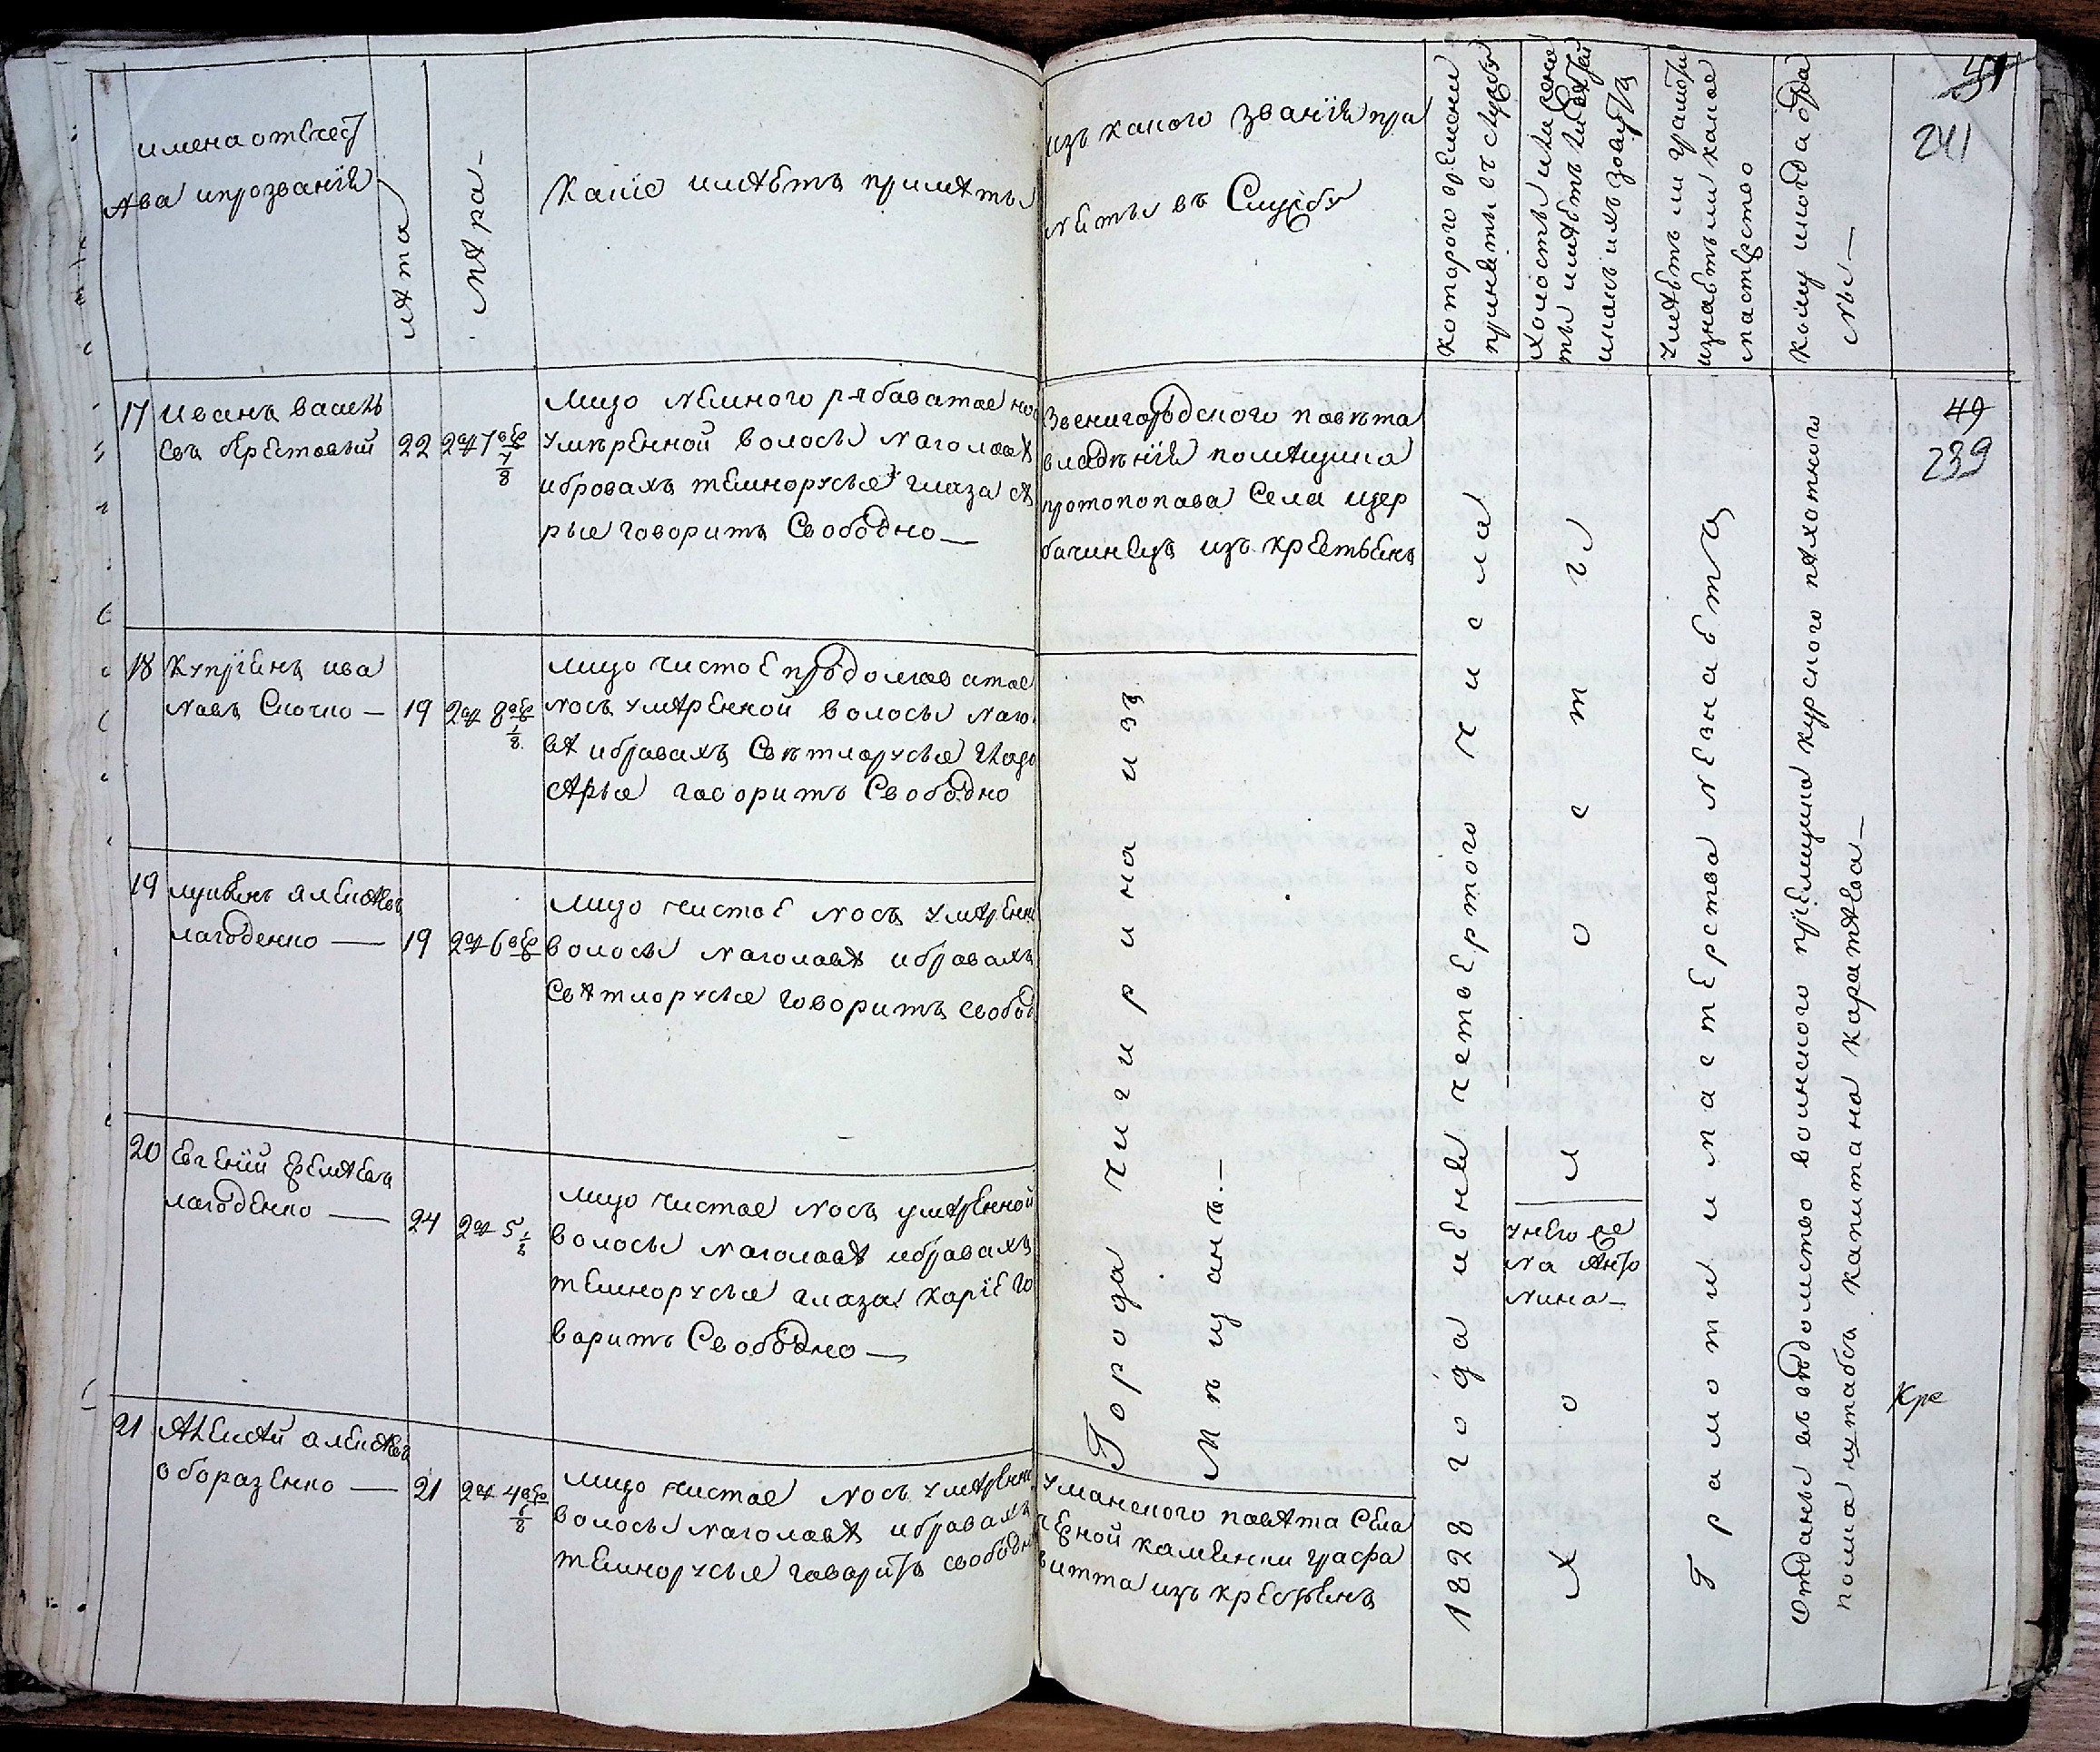 имена отечест
ва ипрозваніи
лѣта
мѣра
Какіе имѣютъ примѣты
изъ какого званія при
няты въ Службу
котораго времени
приняты въ службу
Холосты или жена
ты имѣютъ ли детей
икакъ ихъ зовутъ
Умѣютъ ли грамоти
изнаютъ ли какое
мастерство
Кому икогда отда
ны
51
241
17 Иванъ василь
евъ Крестовый
22
2 ар 7 вер 7/8
Лицо немного рябаватое нос
умѣренной волосы наголовѣ
ибровахъ темнорусые глаза сѣ
рые говоритъ Свободно
Звенигородского повѣта
владѣнія помѣщика
протопопава Села щер
бачинецъ изъ крестьянъ
49
239
18 Купріянъ ива
новъ
19
2 ар 8 вер 1/8
лицо чистое продолговатое
носъ умѣренной волосы наго
вѣ ибровахъ Свѣтлорусые глаза
сѣрые говоритъ Свободно
19 лукьянъ алексѣевъ
лагоденко
19
2 ар 6 вер
лицо чистое носъ умѣренн
волосы наголовѣ ибровахъ
Свѣтлорусые говоритъ свобод
20 Евгеній Еремѣевъ
лагоденко
24
2 ар 5 1/8
лицо чистое носъ умѣренной
волосы наголовѣ ибровахъ
темнорусые глаза каріе го
воритъ Свободно
Города Чигирина изъ
Мѣщанъ.
21 Алексѣй алексѣевъ
оборазенко
21
2 ар 4 вер 6/8
лицо чистое носъ умѣренн
волосы наголовѣ ибровахъ
темнорусые говоритъ свободн
Уманского повѣта Села
черной каменки графа
витта изъ крестьянъ
1828 года июня четвертого числа
Холостъ
унего же
на Анто
нина
Грамоти и мастерства незнаютъ
Отданы въ вѣдомство воинского пріемщика курского пѣхотного
полка штабсъ капитана каратѣева
Кре